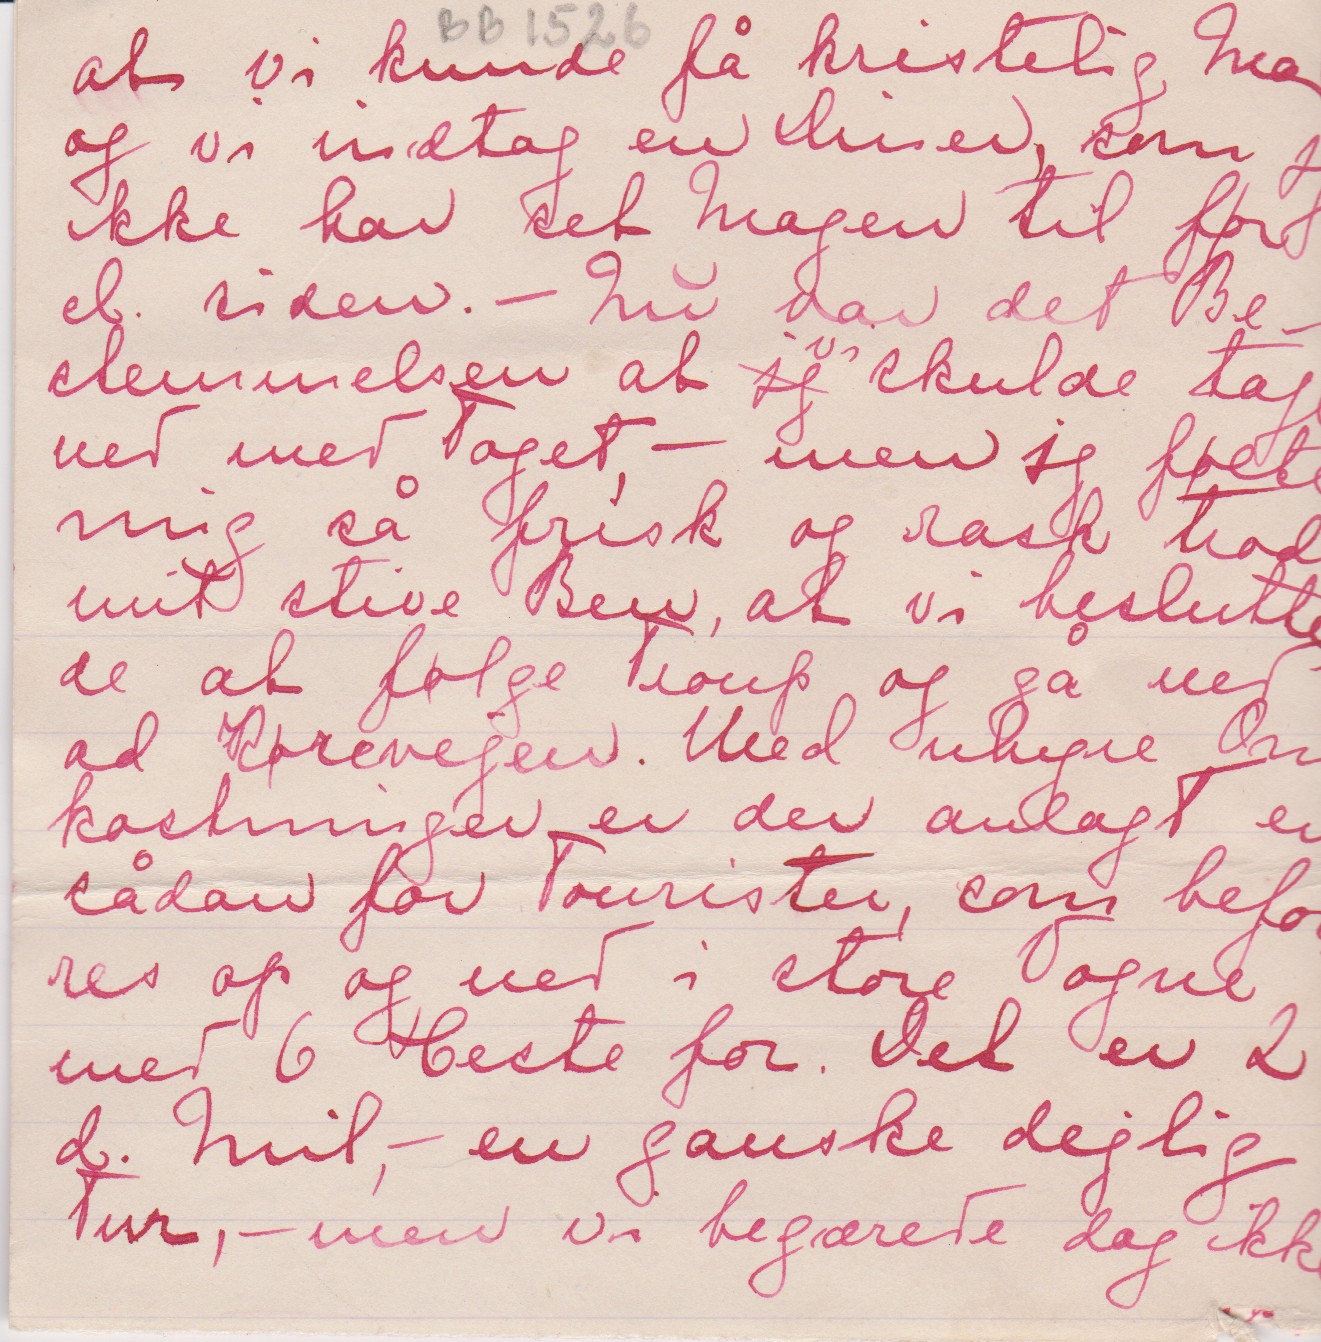 BB 1526
at vi kunde få kristelig Ma
og vi indtog en Diner, som j
ikke har set Magen til før
el. siden. – Nu var det Be-
stemmelsen at jg vi skulde tage
ned med Toget, – men jg følte
mig så frisk og rask trod
mit stive Ben, at vi beslutte
de at følge Troup og gå ned
ad Kørevejen. Med uhyre Om
kostninger er der anlagt en
sådan for Turister, som befø
res op og ned i store Vogne
med 6 Heste for. Det er 2
d. Mil, – en ganske dejlig
Tur, – men vi begærede dog ikke